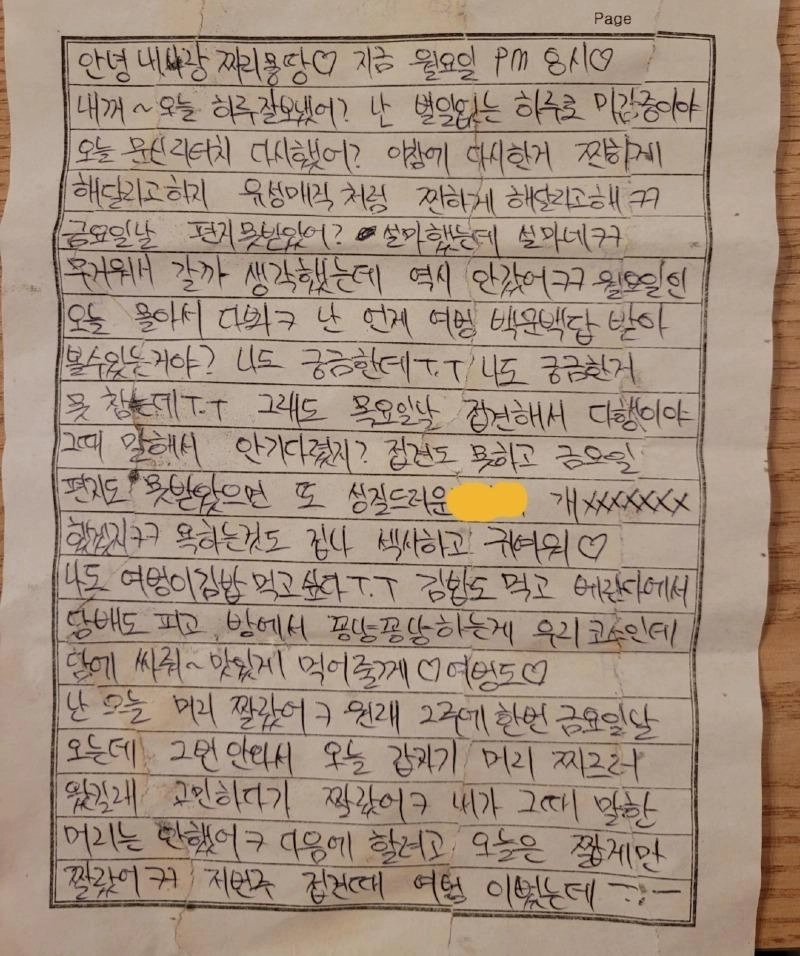 Page
안녕 내사랑 짜리몽땅♡ 지금 월요일 PM 8시♡
내꺼~ 오늘 하루 잘보냈어? 난 별일없는 하루로 마감중이야
오늘 문신리터치 다시했어? 이참에 다시한거 찐하게
해달라고하지 유성매직 처럼 찐하게 해달라고해 ㅋㅋ
금요일날 편지못받았어? 설마했는데 설마네ㅋㅋ
무거워서 갈까 생각했는데 역시 안갔어ㅋㅋ 월요일인
오늘 몰아서 다봐ㅋ 난 언제 여벙 백문백답 받아
볼수있는거야? 나도 궁금한데T.T 나도 궁금한거
못 참는데T.T 그래도 목요일날 접견해서 다행이야
그때 말해서 안기다렸지? 접견도 못하고 금요일
편지도 못받았으면 또 성질드러운 개xxxxxxx
했겠지ㅋㅋ 욕하는것도 겁나 섹시하고 귀여워♡
나도 여벙이김밥 먹고싶다T.T 김밥도 먹고 베란다에서
담배도 피고, 방에서 퐁냥퐁냥하는게 우리코스인데
담에 싸줘~ 맛있게 먹어줄게♡여벙도♡
난 오늘 머리 짤랐어ㅋ 원래 2주에 한번 금요일날
오는데 그번 안와서 오늘 갑자기 머리 짜르러
왔길래 고민하다가 짤랐어ㅋ 내가 그때 말한
머리는 안했어ㅋ 다음에 할려고 오늘은 짧게만
짤랐어ㅋㅋ 저번주 접견때 여벙 이뻤는데 ㅡ.ㅡ